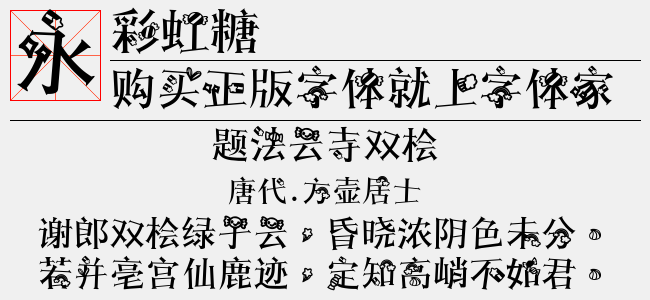 永
彩虹糖
购买正版字体就上字体家
题法云寺双桧
唐代.方壶居士
谢郎双桧绿于云，昏晓浓阴色未分。
若并亳宫仙鹿迹，定知高峭不如君。